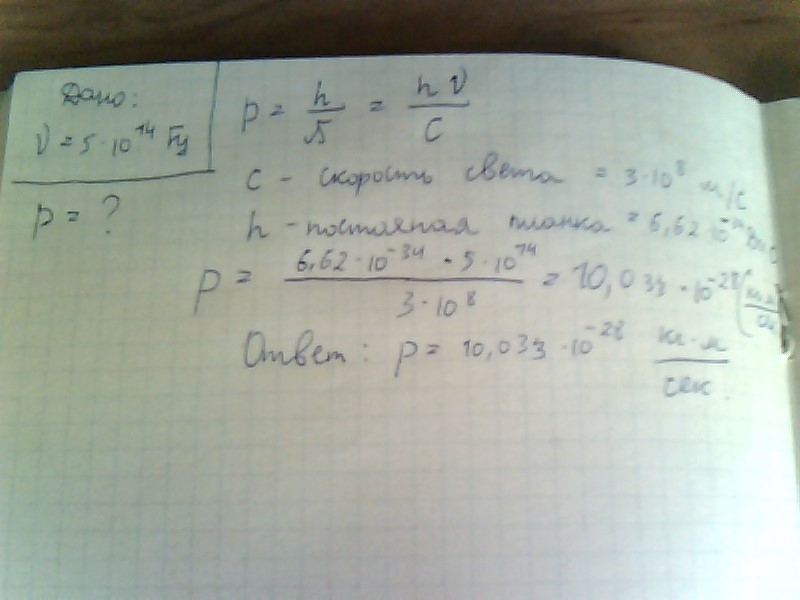 Дано:
ν = 5·10¹⁴ Гц
p = ?
p = h/λ = hν/c
c - скорость света = 3·10⁸ м/с
h - постояная планка = 6,62·10
p = 6,62·10⁻³⁴ · 5·10¹⁴ / 3·10⁸ = 10,033·10⁻²⁸
Ответ: p = 10,033·10⁻²⁸ кг·м/сек.